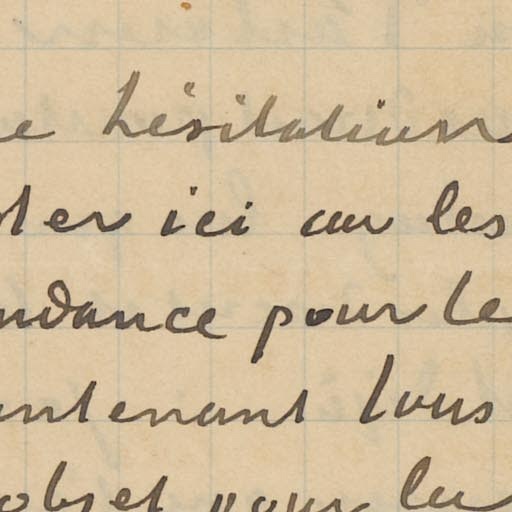 e hésitation
ter ici car les
ndance pour le
ntenant tous
objet pour la